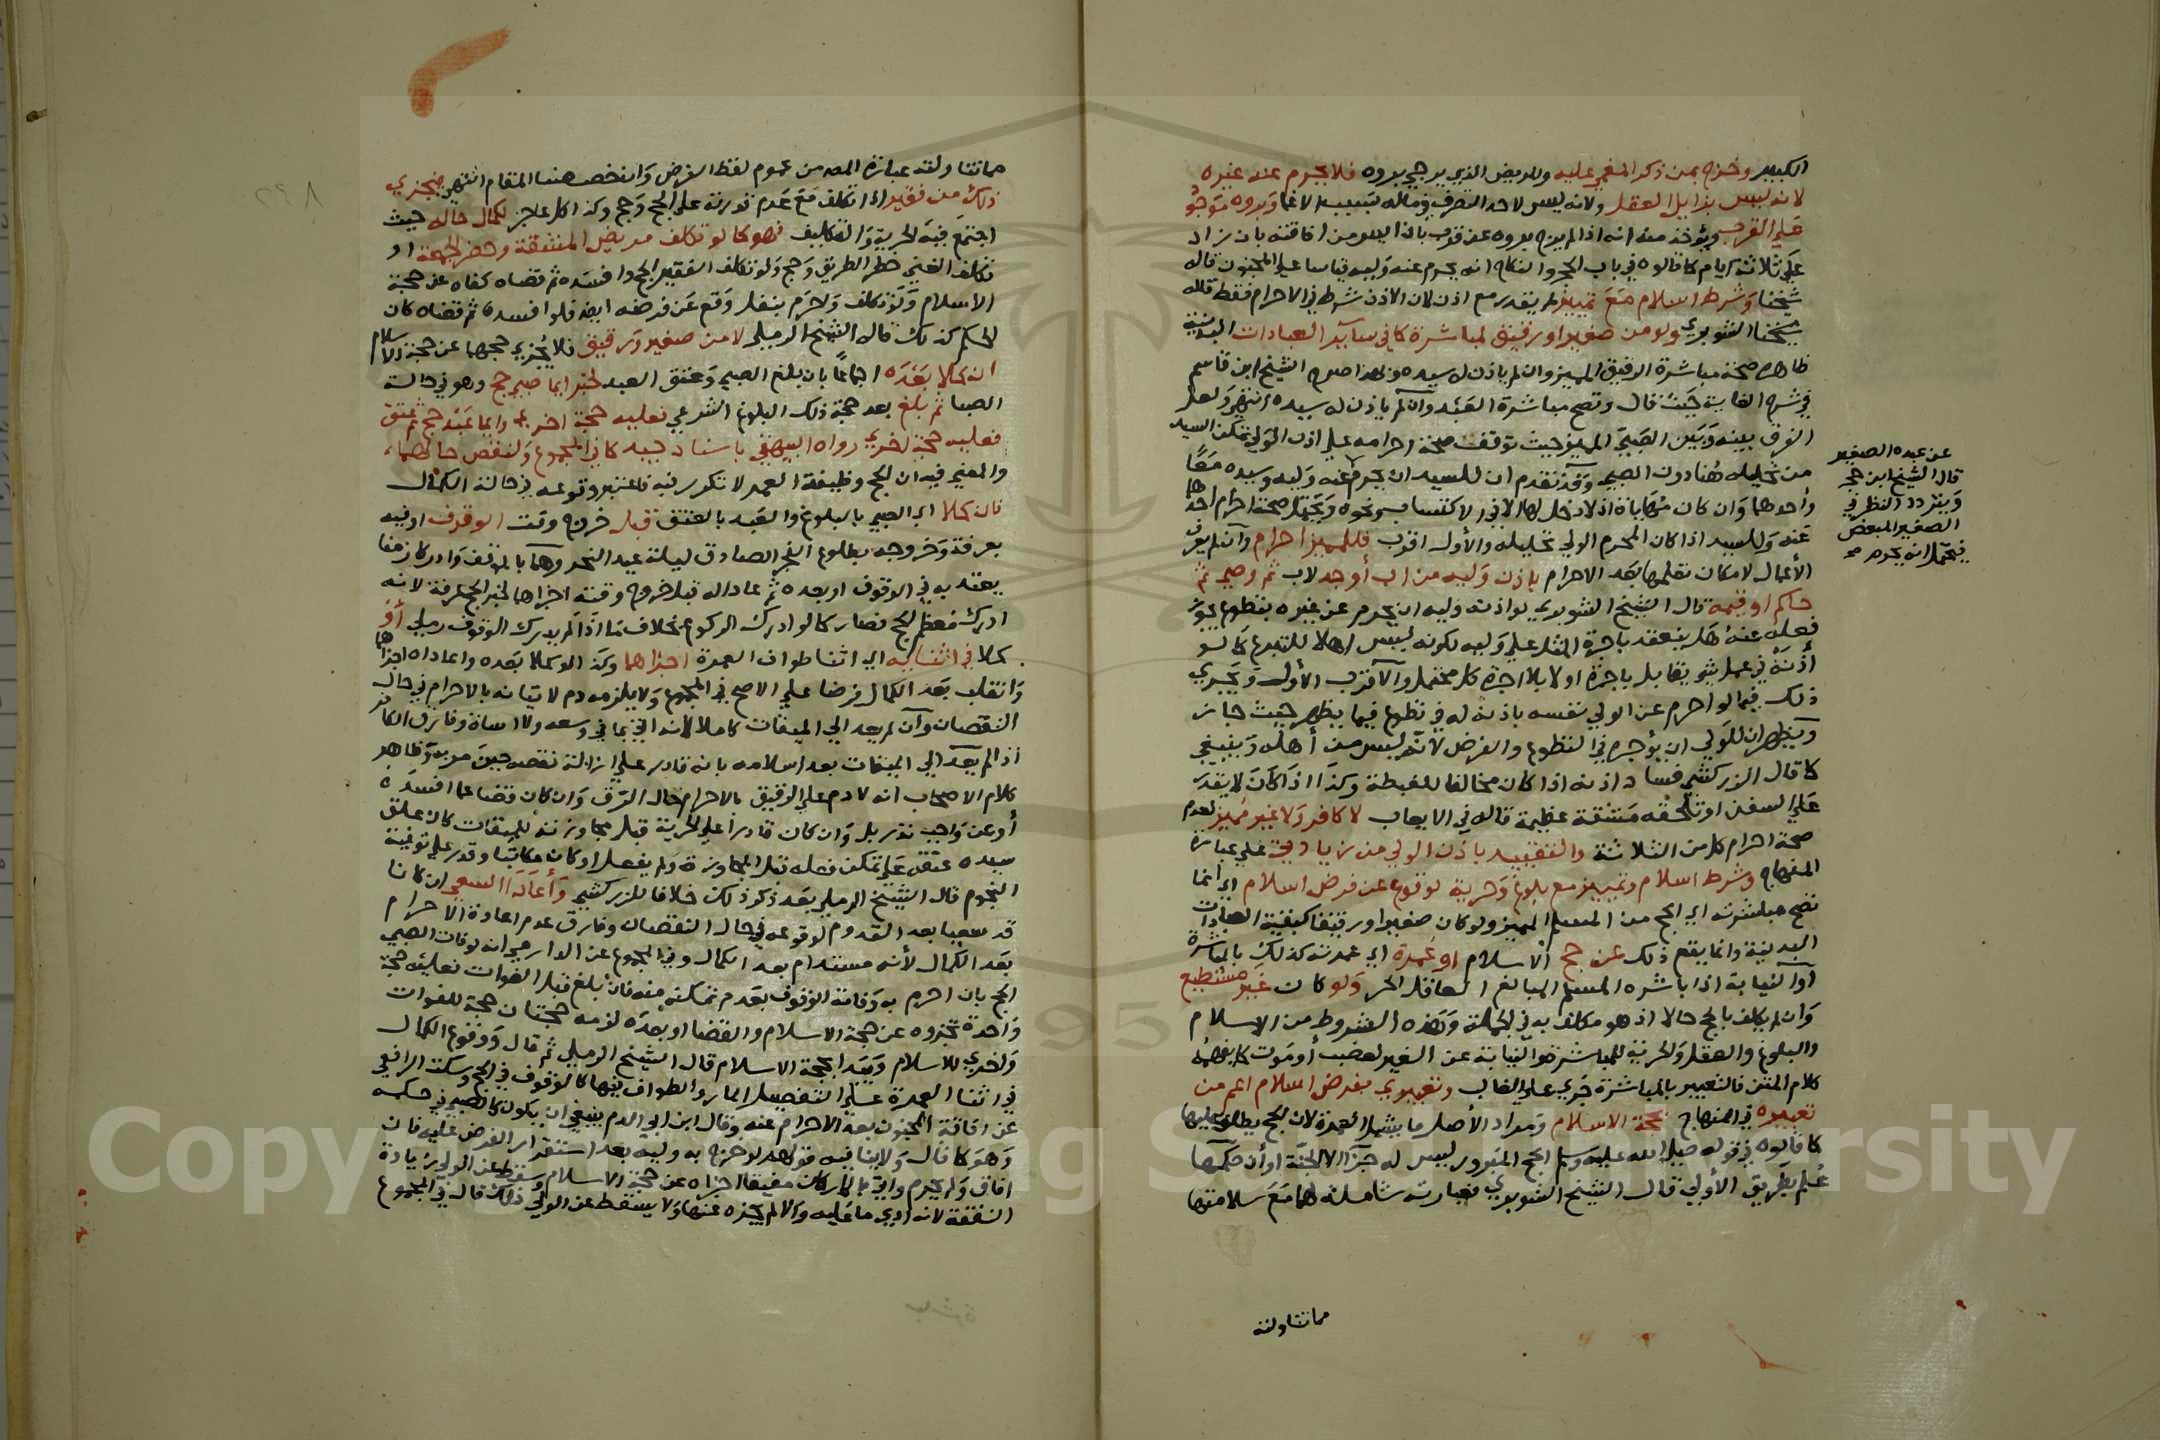 الكبير وخرج بمن ذكر المغمى عليه والمريض الذي يرجى بروه فلا يحرم عنه غيره
لانه ليس بزايل العقل ولانه ليس لاحد التصرف في ماله بسبب الاغما وبروه مرجو
على القرب ويؤخذ منه انه اذا لم يرج بروه عن قرب بان ايس من افاقته بان زاد
على ثلاثة ايام كما قالوه في باب الحجر والنكاح انه يحرم عنه وليه قياسا على المجنون قاله
شيخنا وشرط اسلام مع تمييز لم يقدر مع اذن لان الاذن شرط في الاحرام فقط قاله
شيخنا الشوبري ولو من صغير او رقيق لمباشرة كما في ساير العبادات البدنية
ظاهره صحة مباشرة الرقيق المميز وان لم ياذن له سيده وبه صرح الشيخ ابن قاسم
في شرح الغاية حيث قال وتصح مباشرة العبد وان لم ياذن له سيده انتهى ولعل
الفرق بينه وبين الصبي المميز حيث توقفت صحة احرامه على اذن الولي تمكن السيد
من تحليله هنا دون الصبي وقد تقدم ان للسيد ان يحرم عنه وليه وسيده معا
واحدهما وان كان مهاياة اذ لا دخل لها الا في الاكتساب ونحوه ويحتمل صحة احرام احدهما
عنه وللسيد اذا كان المحرم الولي تحليله والأول اقرب فللمميز احرام وان لم يعرف
الأعمال لامكان تعلمها بعد الاحرام باذن وليه من اب أو جد لاب ثم وصي ثم
حاكم او قيمه قال الشيخ الشوبري لو اذن له وليه ان يحرم عن غيره بتطوع يجوز
فعله عنه هل ينعقد باجرة المثل على وليه لكونه ليس اهلا للتبرع كما لو
أذن له في عمل شيء يقابل باجرة او لا بلا اجرة كل محتمل والاقرب الأول ويجري
ذلك فيما لو احرم عن الولي نفسه باذنه له في تطوع فيما يظهر حيث جاز
ويظهر ان للولي ان يؤجره في التطوع والفرض لانه ليس من أهله وينبغي
كما قال الزركشي فساد اذنه اذا كان مخالفا للغبطة وكذا اذا كان لا يقدر
على السفر او تلحقه مشقة عظيمة قاله في الايعاب لا كافر ولا غير مميز لعدم
صحة احرام كل من الثلاثة والتقييد باذن الولي من زيادتي على عبارة
المنهاج وشرط اسلام وتمييز مع بلوغ وحرية لوقوع عن فرض اسلام اي انما
تصح مباشرته اي الحج من المسلم المميز ولو كان صغيرا ورقيقا كبقية العبادات
البدنية وانما يقع ذلك عن حج الاسلام او عمرة اي عمرته كذلك بالمباشرة
أو النيابة اذا باشره المسلم البالغ العاقل الحر ولو كان غير مستطيع
وان لم يكلف بالحج حالا اذ هو مكلف به في الجملة وهذه الشروط من الاسلام
والبلوغ والعقل والحرية للمباشرة والنيابة عن الغير لعضب أو موت كما يفهمه
كلام المتن فالتعبير بالمباشرة جرى على الغالب وتعبيري بفرض اسلام اعم من
تعبيره في المنهاج بحجة الاسلام ومراد الأصل ما يشمل العمرة لان الحج يطلق عليها
كما قالوه في قوله صلى الله عليه وسلم الحج المبرور ليس له جزآ الا الجنة او أن حكمها
علم بطريق الأولى قال الشيخ الشوبري فعبارته شاملة لها مع سلامتها
مما تناولته
عن عبده الصغير
قال الشيخ ابن حجر
ويتردد النظر في
الصغير المبعض
فيحتمل انه يحرم صح
مما تناولته عبارة المص من عموم لفظ الفرض وان خص هنا المقام انتهى فيجزي
ذلك من فقير اذا تكلف مع عدم قدرته على الحج وحج وكذا كل عاجز لكمال حاله حيث
اجتمع فيه الحرية والتكليف فهو كما لو تكلف مريض المشقة وحضر الجمعة او
تكلف الغني خطر الطريق وحج ولو تكلف الفقير الحج وافسده ثم قضاه كفاه عن حجة
الاسلام ولو تكلف واحرم بنفل وقع عن فرضه ايضا فلو افسده ثم قضاه كان
الحكم كذلك قاله الشيخ الرملي لا من صغير ورقيق فلا يجزي حجهما عن حجة الاسلام
ان كملا بعده اجماعا بان بلغ الصبي وعتق العبد لخبر ايما صبي حج وهو في حالة
الصبا ثم بلغ بعد حجة ذلك البلوغ الشرعي فعليه حجة اخرى وايما عبد حج ثم عتق
فعليه حجة اخرى رواه البيهقي باسناد جيد كما في المجموع ولنقص حالهما
والمعنى فيه ان الحج وظيفة العمر لا تكرر فيه فاعتبر وقوعه في حالة الكمال
فان كملا اي الصبي بالبلوغ والعبد بالعتق قبل خروج وقت الوقوف او فيه
بعرفة وخروجه بطلوع الفجر الصادق ليلة عيد النحر وهما بالموقف وادركا زمنا
يعتد به في الوقوف او بعده ثم عادا له قبل خروج وقته اجزاهما لخبر الحج عرفة لانه
ادرك معظم الحج فصار كما لو ادرك الركوع بخلاف ما اذا لم يدرك الوقوف رملي أو
كملا في اثنائه اي اثنا طواف العمرة اجزاهما وكذا لو كملا بعده واعاداه اجزاهما
وانقلب بعد الكمال فرضا على الاصح في المجموع ولا يلزمه دم لاتيانه بالاحرام في حال
النقصان وان لم يعد الى الميقات كاملا لانه اتى بما في وسعه ولا اساة وفارق الكافر
اذا لم يعد الى الميقات بعد اسلامه بانه قادر على ازالة نقصه حين مر به وظاهر
كلام الاصحاب انه لا دم على الرقيق بالاحرام حال الرق وان كان قضا عما افسده
أو عن واجب نذر بل وان كان قادرا على الحرية قبل مجاوزته للميقات كان علق
سيده عتقه على تمكن فعله قبل المجاوزة ولم يفعل او كان مكاتبا وقدر على توفية
النجوم قال الشيخ الرملي بعد ذكر ذلك خلافا للزركشي وأعادا السعي ان كانا
قد سعيا بعد القدوم لوقوعه في حال النقصان وفارق عدم اعادة الاحرام
بعد الكمال لأنه مستدام بعد الكمال وفي المجموع عن الدارمي انه لو فات الصبي
الحج بان احرم به وفاته الوقوف بعدم تمكنه منه فان بلغ قبل الفوات فعليه حجة
واحدة تجزيه عن حجة الاسلام والقضا او بعده لزمه حجتان حجة للفوات
واخرى للاسلام ويبدا بحجة الاسلام قال الشيخ الرملي ثم قال ووقوع الكمال
في اثنا العمرة على التفصيل المار والطواف فيها كالوقوف في الحج وسكت الرافعي
عن افاقة المجنون بعد الاحرام عنه وقال ابن ابي الدم ينبغي ان يكون كالصبي في حكمه
وهو كما قال ولا ينافيه قولهم لو خرج به وليه بعد استقرار الفرض عليه فان
افاق ولم يحرم واتى بالاركان مفيقا اجزاه عن حجة الاسلام وسقط عن الولي زيادة
النفقة لانه ادى ما عليه والا لم يجزه عنها ولا يسقط عن الولي ذلك قال في المجموع